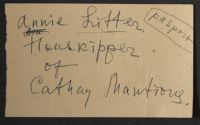 Annie Litter
pasport
Houskipper
of
Cathay Mantrong.